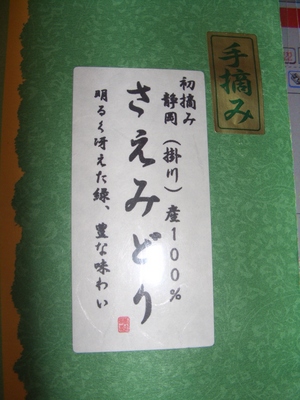 手摘み
初摘み
静岡(掛川)産100%
さえみどり
明るく冴えた緑、豊な味わい